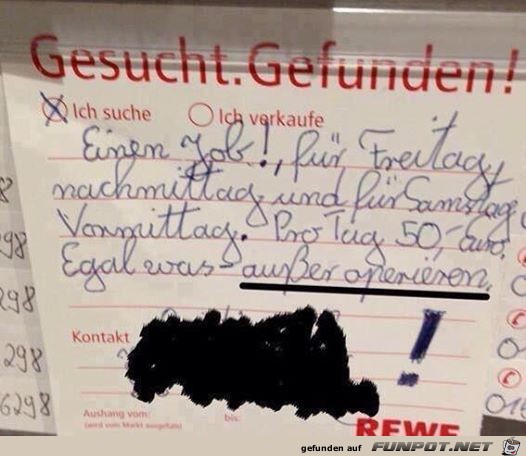 Gesucht. Gefunden!
Ich suche Ich verkaufe
Einen Job!, für Freitag,
nachmittag und für Samstag
Vormittag. Pro Tag 50,- Euro.
Egal was - außer operieren.
!
Kontakt
Aushang vom: bis:
(wird vom Markt ausgefüllt)
REWE
8
298
298
298
6298
gefunden auf FUNPOT.NET